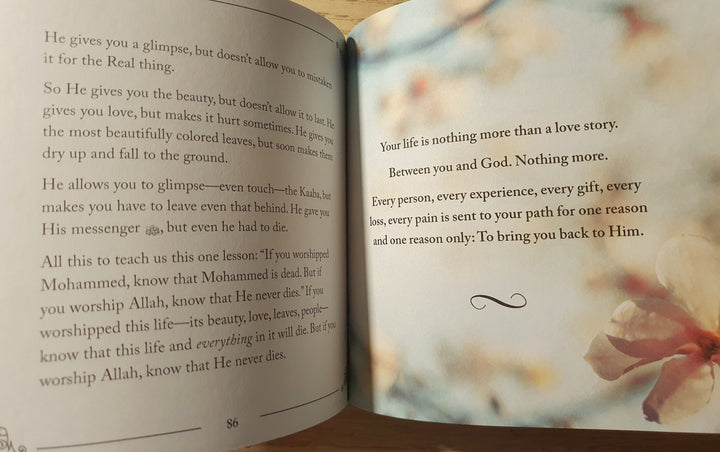 He gives you a glimpse, but doesn't allow you to mistaken
it for the Real thing.
So He gives you the beauty, but doesn't allow it to last. He
gives you love, but makes it hurt sometimes. He gives you
the most beautifully colored leaves, but soon makes them
dry up and fall to the ground.
He allows you to glimpse—even touch—the Kaaba, but
makes you have to leave even that behind. He gave you
His messenger ﷺ, but even he had to die.
All this to teach us this one lesson: "If you worshipped
Mohammed, know that Mohammed is dead. But if
you worship Allah, know that He never dies." If you
worshipped this life—its beauty, love, leaves, people—
know that this life and everything in it will die. But if you
worship Allah, know that He never dies.
86
Your life is nothing more than a love story.
Between you and God. Nothing more.
Every person, every experience, every gift, every
loss, every pain is sent to your path for one reason
and one reason only: To bring you back to Him.